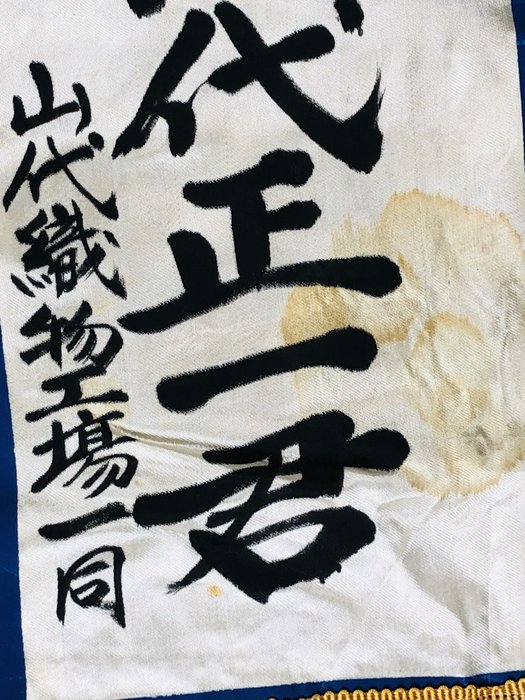 代正一君
山代織物工場一同